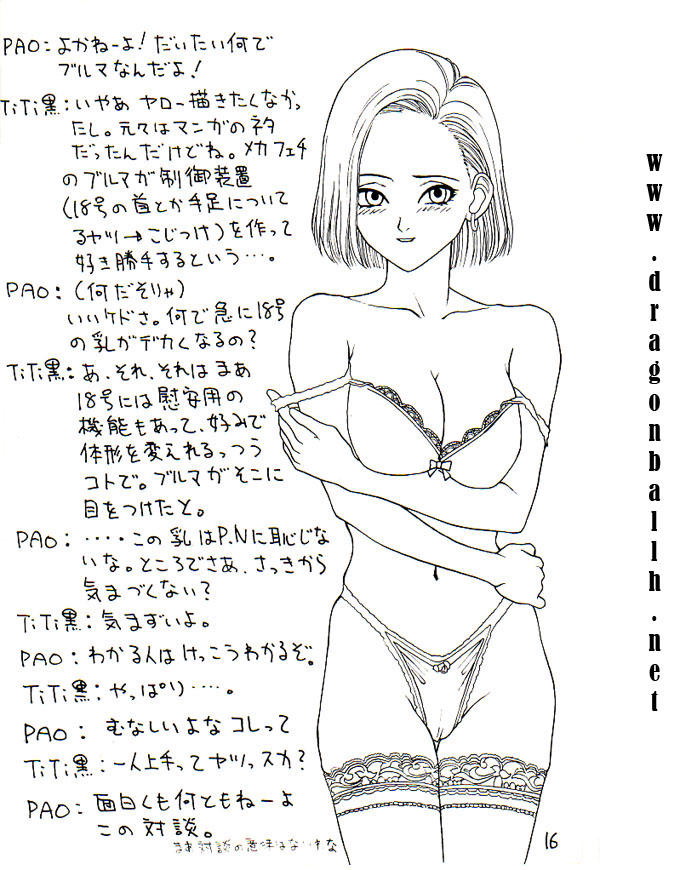 PAO：よかねーよ！だいたい何で
ブルマなんだよ！
TiTi黒：いやあ ヤロー描きたくなかっ
たし。元々はマンガのネタ
だったんだけどね。メカフェチ
のブルマが制御装置
(18号の首とか手足について
るヤツ→こじつけ)を作って
好き勝手するという…。
PAO：(何だそりゃ)
いいケドさ。何で急に18号
の乳がデカくなるの？
TiTi黒：あ、それ、それはまあ
18号には慰安用の
機能もあって、好みで
体形を変えれるっつう
コトで。ブルマがそこに
目をつけたと。
PAO：‥‥この乳はP.Nに恥じな
いな。ところでさあ、さっきから
気まづくない？
TiTi黒：気まずいよ。
PAO：わかる人はけっこうわかるぞ。
TiTi黒：やっぱり‥‥。
PAO：むなしいよなコレって
TiTi黒：一人上手ってヤツっスカ？
PAO：面白くも何ともねーよ
この対談。
まあ対談の意味はないけな
16
www.dragonballh.net